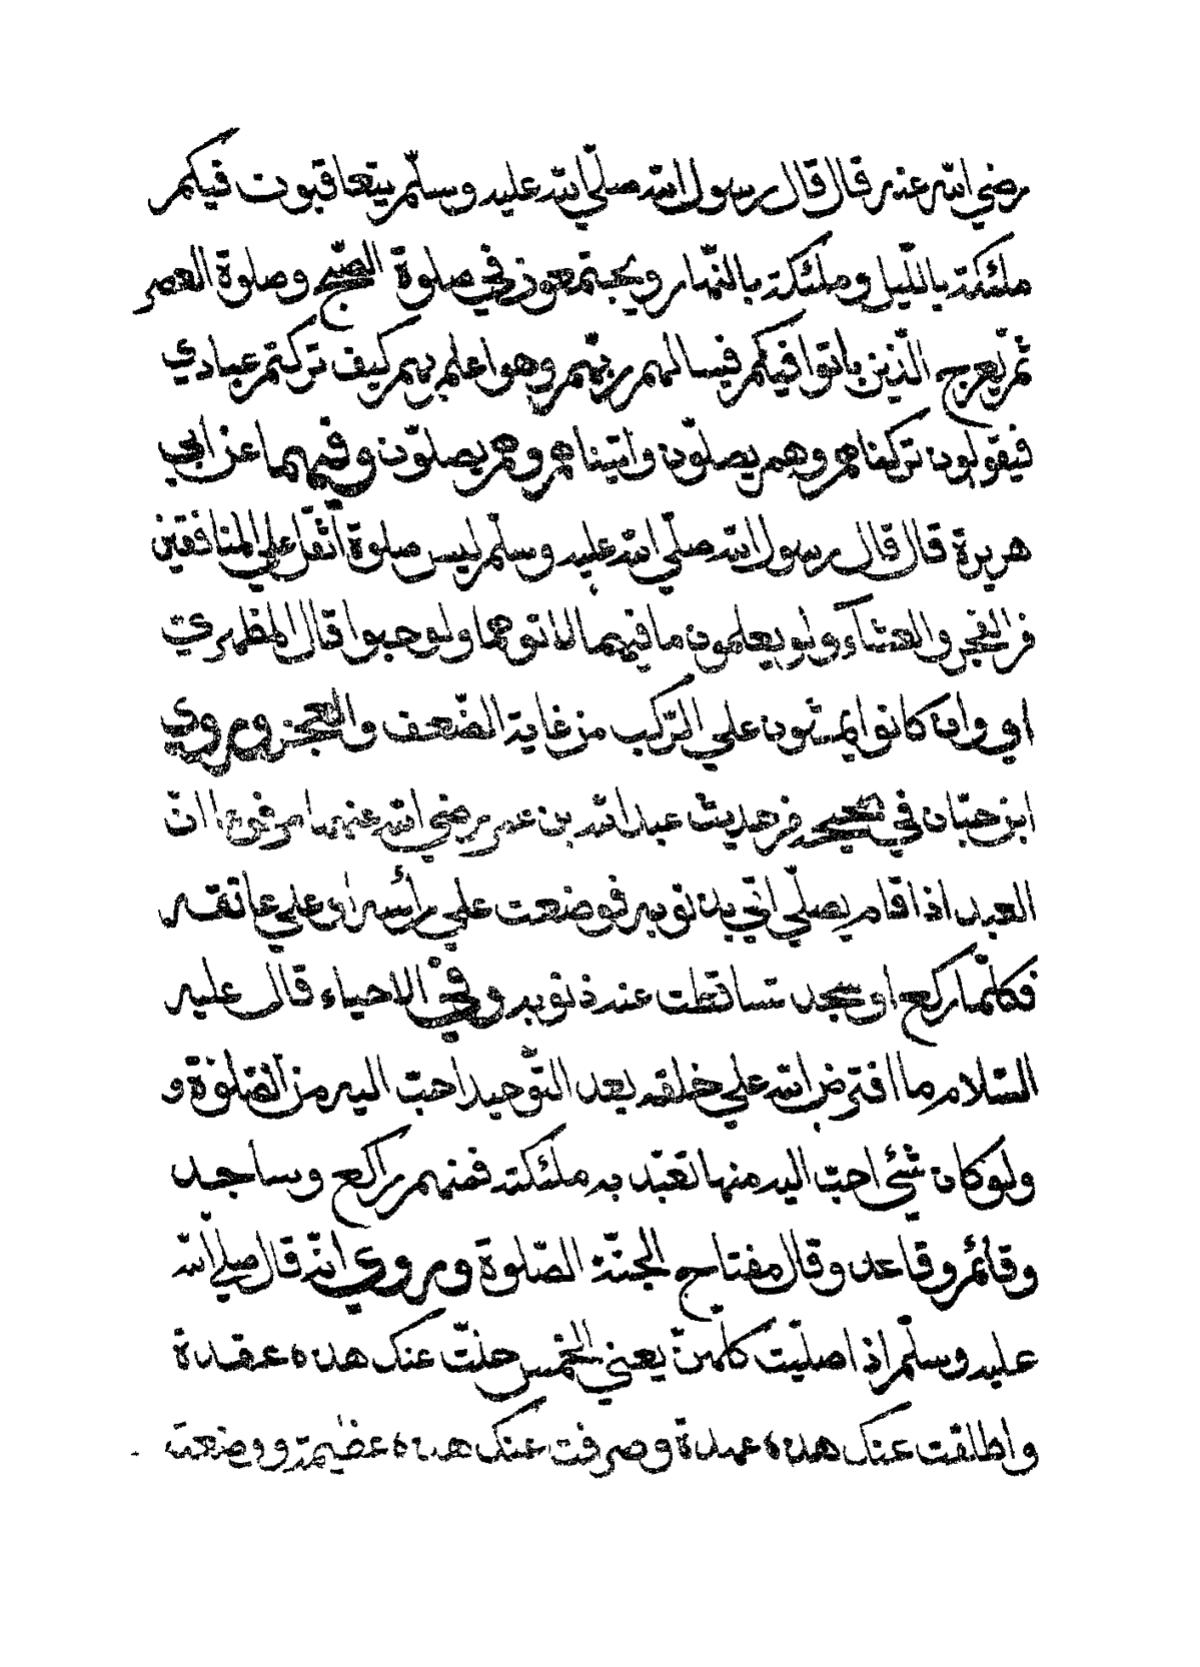 رضي الله عنه قال قال رسول الله صلّي الله عليه وسلّم يتعاقبون فيكم
ملئكة بالليل وملئكة بالنّهار ويجتمعون في صلوة الصّبح وصلوة العصر
ثمّ يعرج الّذين باتوا فيكم فيسالهم ربّهم وهو اعلم بهم كيف تركتم عبادي
فيقولون تركناهم وهم يصلّون واتيناهم وهم يصلّون وفيهما عن ابي
هريرة قال قال رسول الله صلّي الله عليه وسلّم ليس صلوة اثقل علي المنافقين
من الفجر والعشاء ولو يعلمون ما فيهما لاتوهما ولو حبوا قال المظهري
اي وان كانوا يمشون علي الرّكب من غاية الضّعف والعجز وروي
ابن حبّان في صحيحه من حديث عبد الله بن عمر رضي الله عنهما مرفوعا انّ
العبد اذا قام يصلّي اتي بذنوبه فوضعت علي رأسه او علي عاتقه
فكلّما ركع او سجد تساقطت عنه ذنوبه وفي الاحياء قال عليه
السّلام ما افترض الله علي خلقه بعد التّوحيد احبّ اليه من الصّلوة و
ولو كان شئ احبّ اليه منها تعبّد به ملئكته فمنهم راكع وساجد
وقائم وقاعد وقال مفتاح الجنّة الصّلوة وروي انّه قال صلي الله
عليه وسلّم اذا صلّيت كلّهنّ يعني الخمس حلّت عنك هذه عقدة
واطلقت عنك هذه عهدة وصرفت عنك هذه عضيمة ووضعت